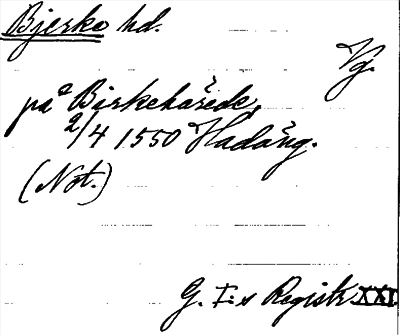 Bjerke hd.
Vg.
på Birkehärede,
2/4 1550 Hadäng.
(Not.)
G. I:s Registr XXI